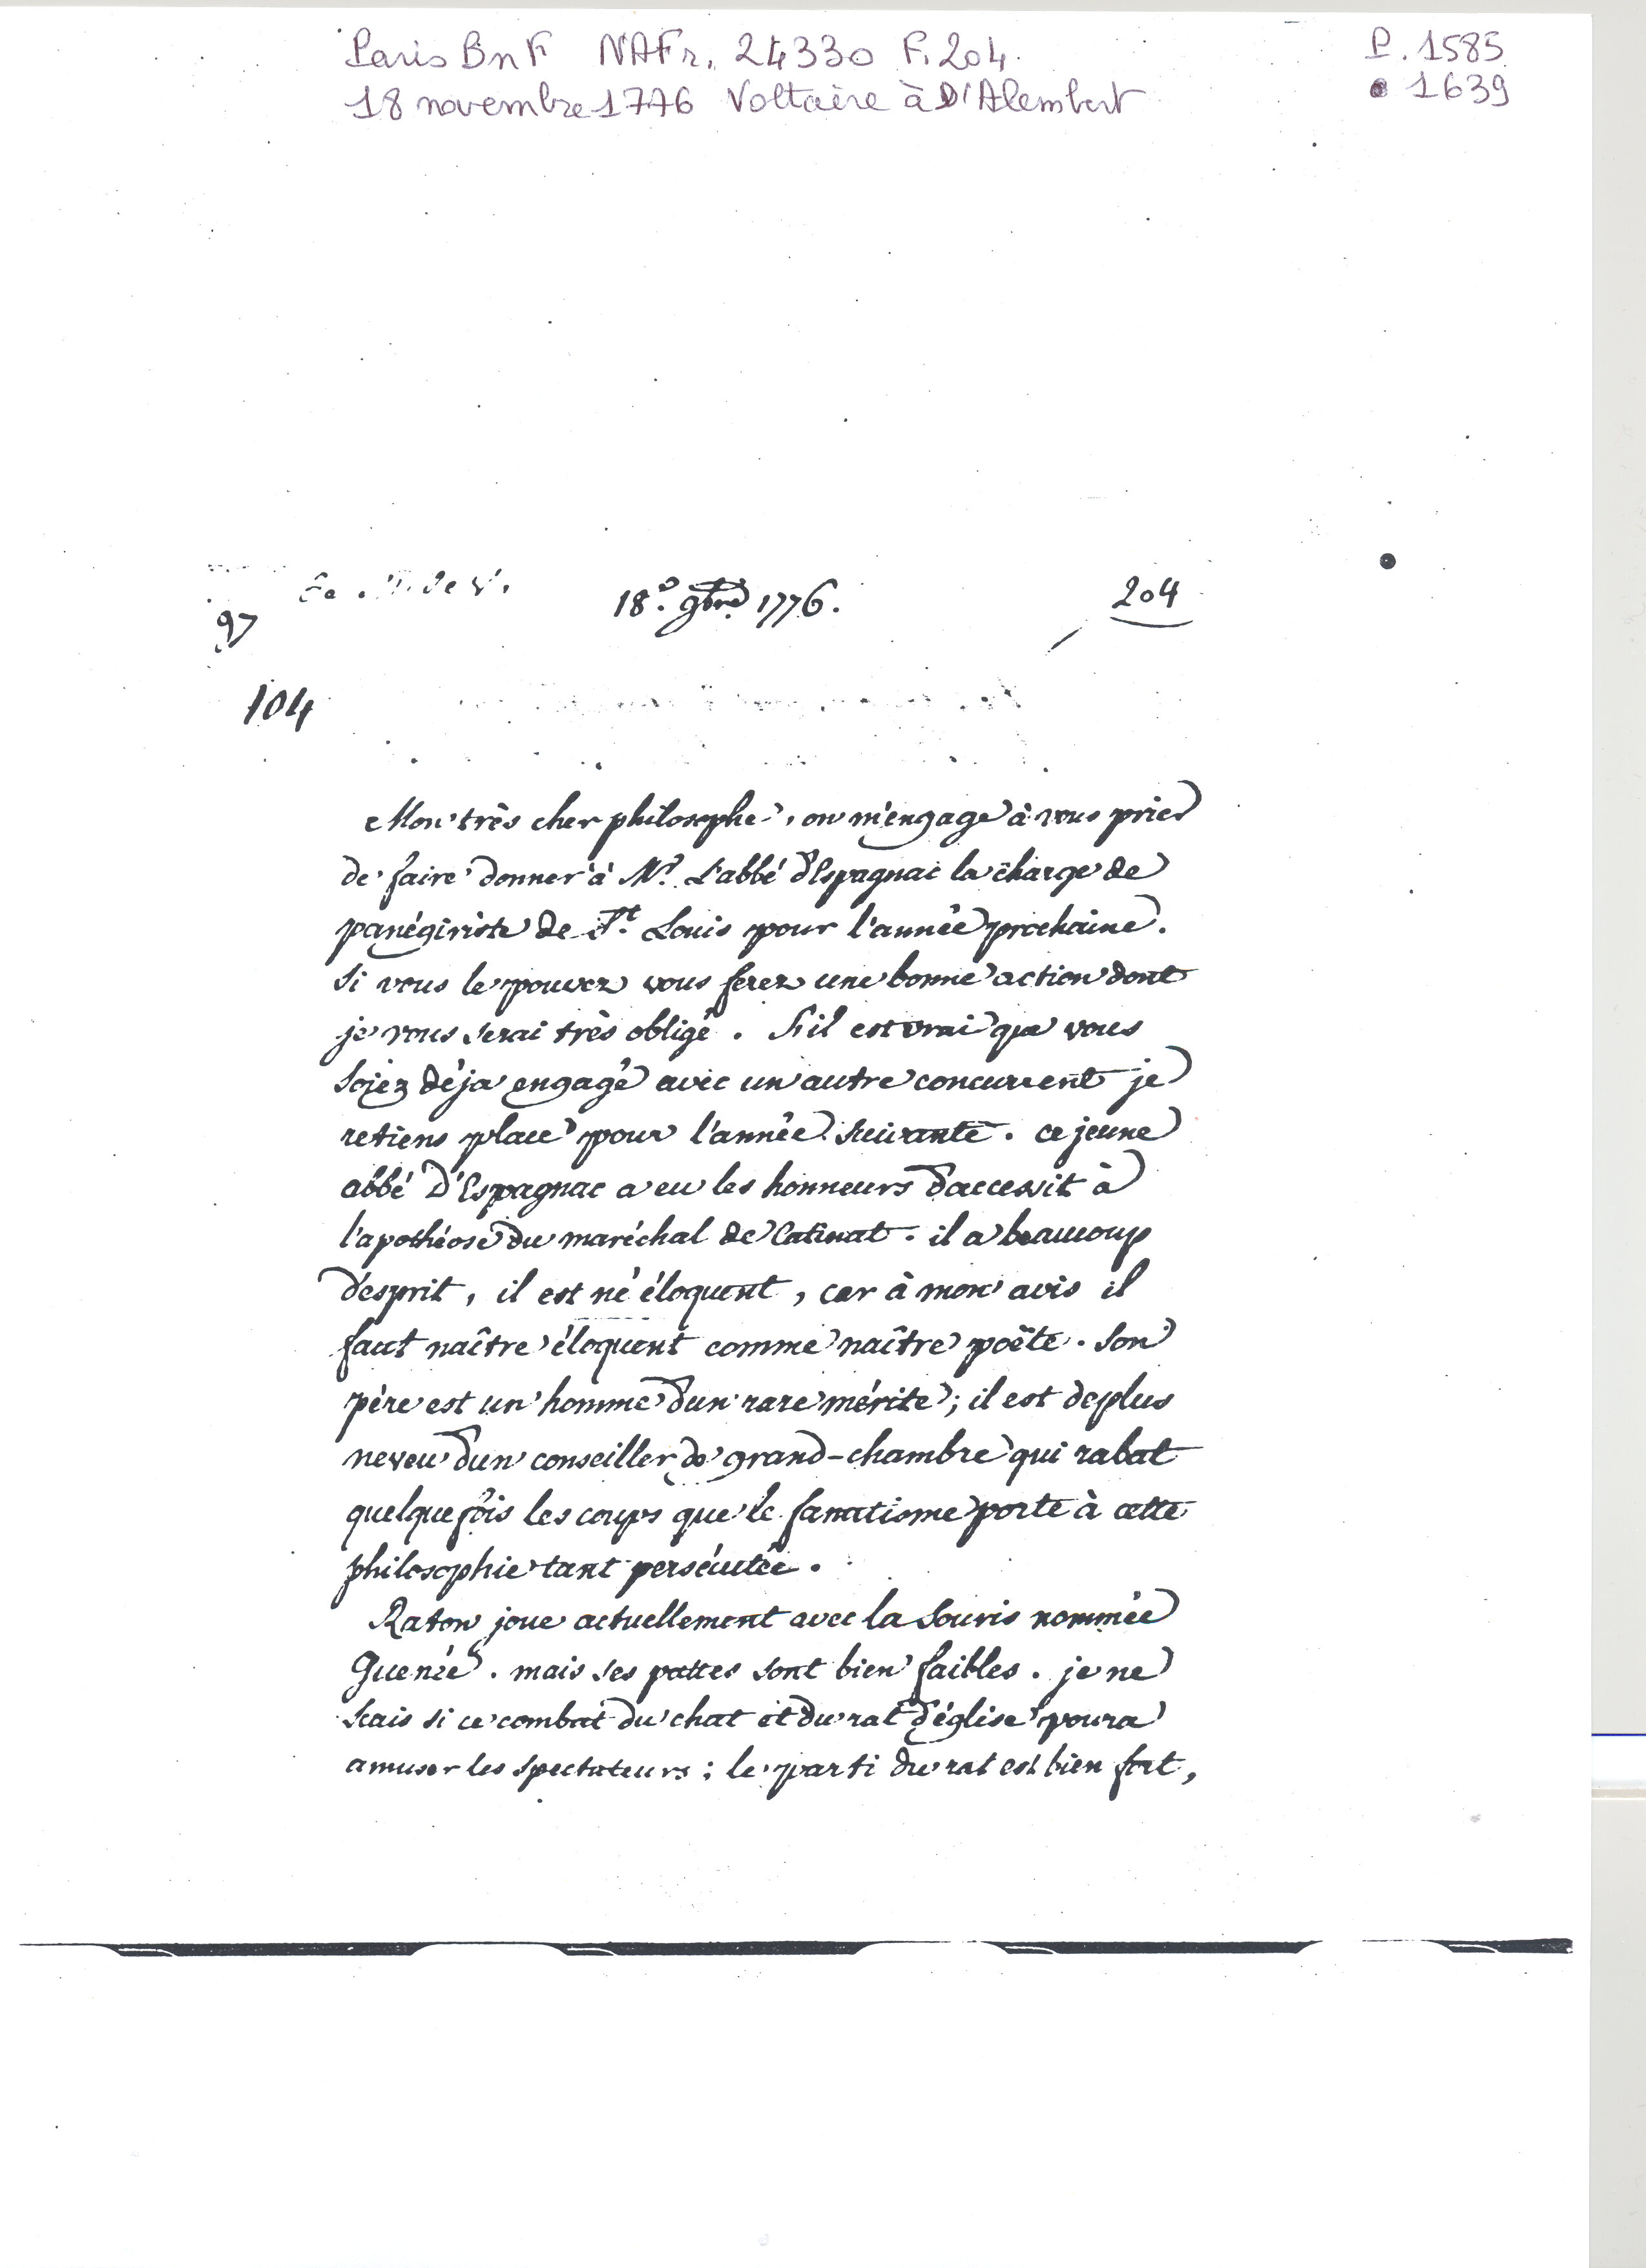 Paris BnF NAFr. 24330 F. 204.
P. 1585
18 novembre 1776 Voltaire à D'Alembert
1639
18.e 9bre. 1776.
204
97
104
Mon très cher philosophe, on m'engage à vous prier
de faire donner à Mr. L'abbé d'Espagnac la charge de
panégiriste de St. Louis pour l'année prochaine.
Si vous le pouvez vous ferez une bonne action dont
je vous serai très obligé. S'il est vrai que vous
soiez déja engagé avec un autre concurrent je
retiens place pour l'année suivante. ce jeune
abbé D'Espagnac a eu les honneurs d'accessit à
l'apothéose du maréchal de Catinat. il a beaucoup
d'esprit, il est né éloquent, car à mon avis il
faut naître éloquent comme naître poëte. Son
père est un homme d'un rare mérite; il est deplus
neveu d'un conseiller de grand-chambre qui rabat
quelque fois les coups que le fanatisme porte à cette
philosophie tant persécutée.
Raton joue actuellement avec la Souris nommée
Guenée. mais ses pattes sont bien faibles. je ne
scais si ce combat du chat et du rat d'église poura
amuser les spectateurs; le parti du rat est bien fort,